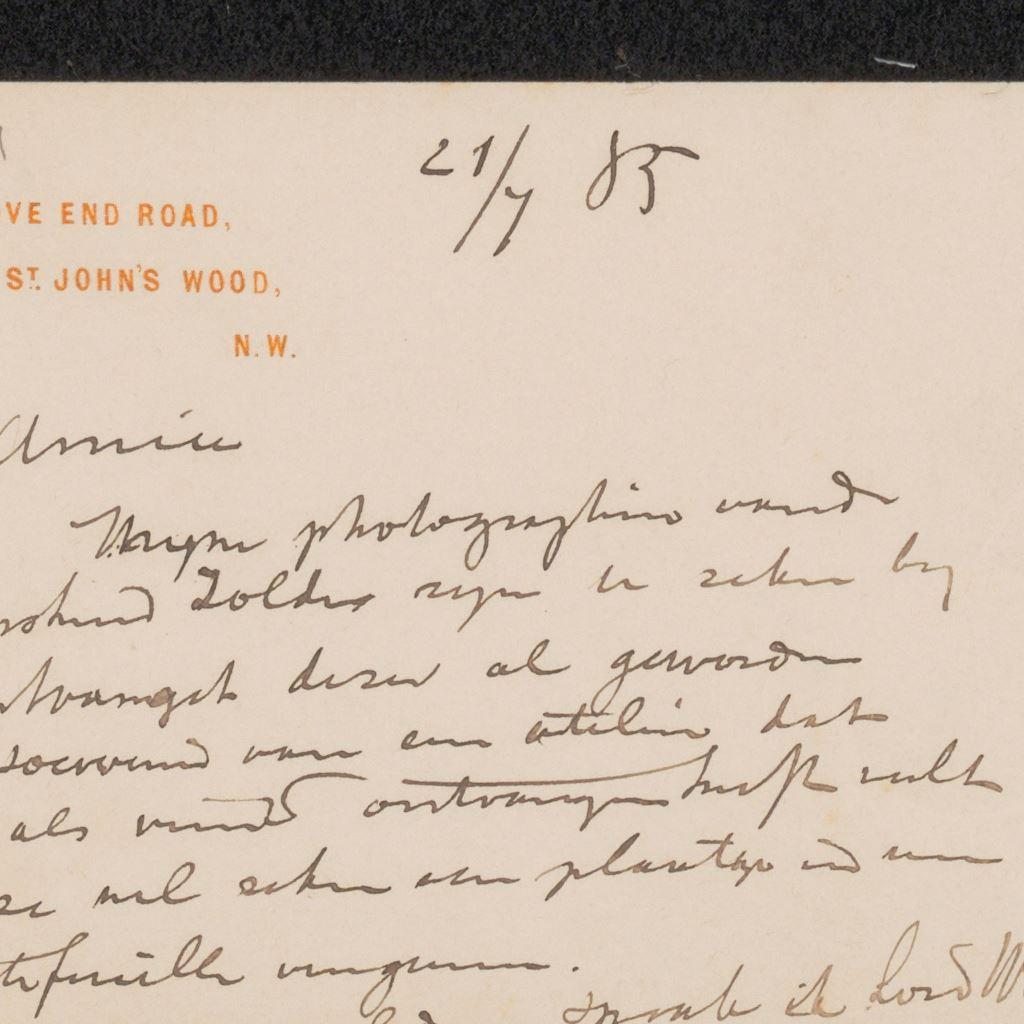 21/7 85
OVE END ROAD,
ST. JOHN'S WOOD,
N.W.
Amice
Mijne photographien van d
Zolder zijn u zeker bij
ontvangst dezer al geworden
van een atelier dat
als vriend ontvangen heeft zult
ze wel zeker een plaatsje in uw
tefeuille vergunnen.
sprak ik Lord